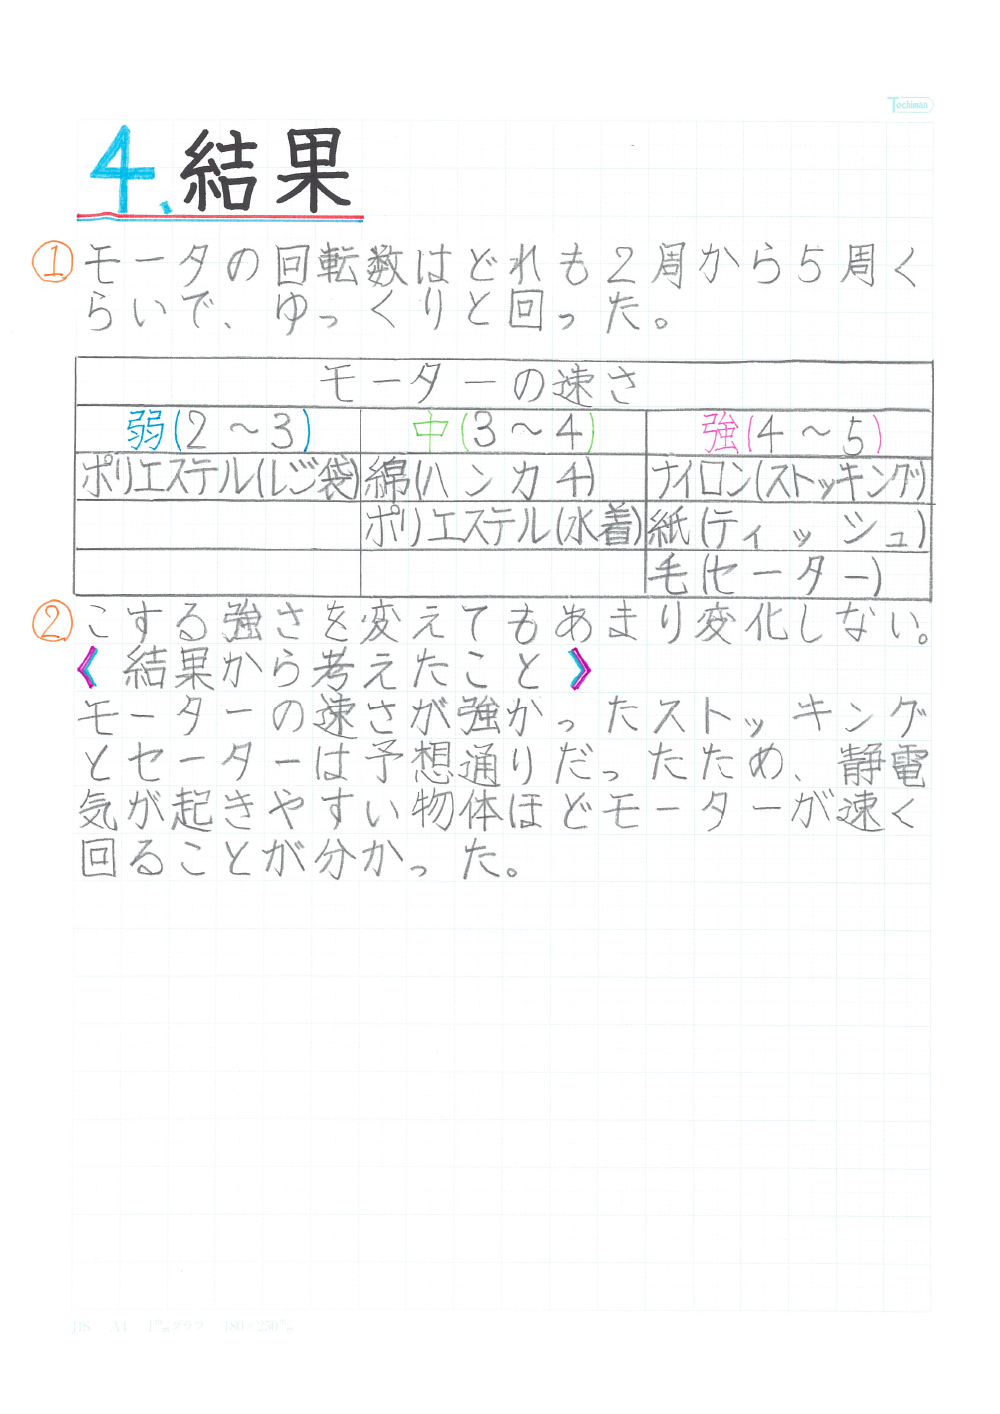 Tochiman
4、結果
① モータの回転数はどれも2周から5周く
らいで、ゆっくりと回った。
モーターの速さ
弱(2～3) 中(3～4) 強(4～5)
ポリエステル(レジ袋) 綿(ハンカチ) ナイロン(ストッキング)
ポリエステル(水着) 紙(ティッシュ)
毛(セーター)
② こする強さを変えてもあまり変化しない。
《結果から考えたこと》
モーターの速さが強かったストッキング
とセーターは予想通りだったため、静電
気が起きやすい物体ほどモーターが速く
回ることが分かった。
JIS A4 1mmグラフ 180×250mm